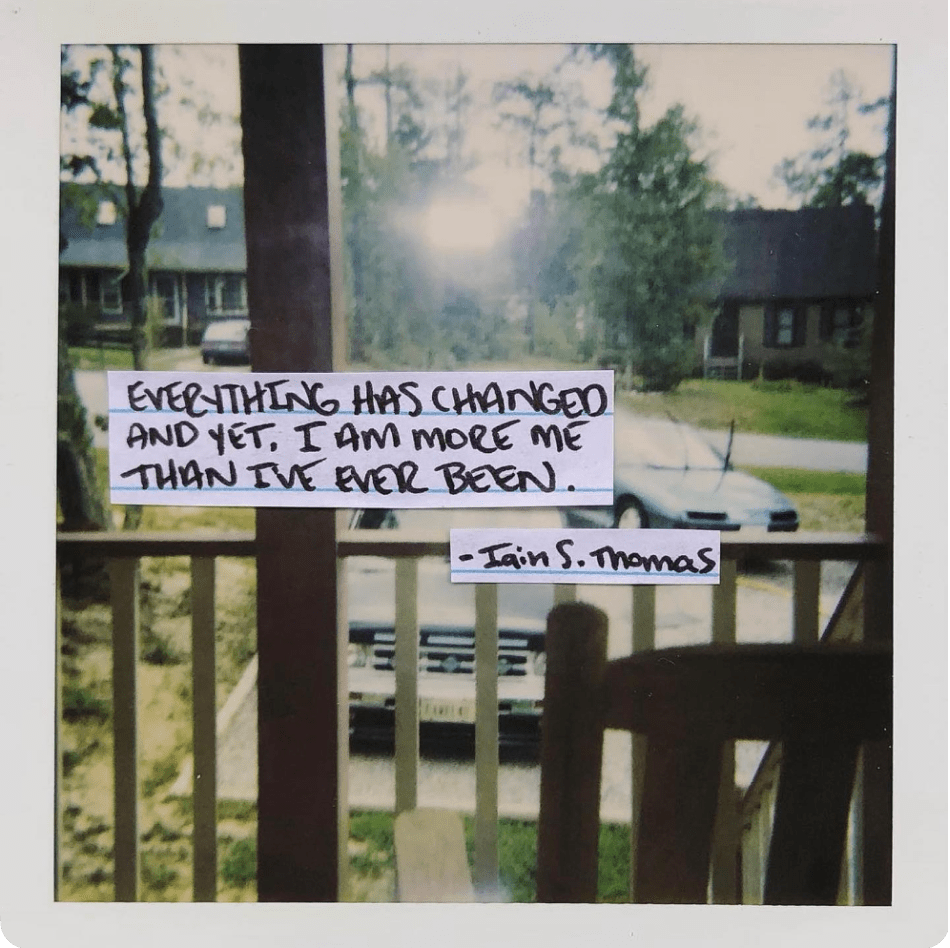 EVERYTHING HAS CHANGED
AND YET, I AM MORE ME
THAN I'VE EVER BEEN.
- Iain S. Thomas